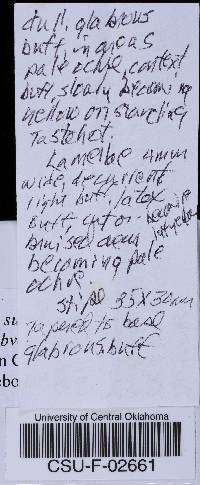 dull, glabrous
buff, in areas
pale ochre, context
buff, slowly becoming
yellow on standing
Taste hot.
Lamellae 4mm
wide, decurrent
light buff, latex
buff, cut or becoming
bruised areas
becoming pale
ochre
stipe 35X30mm
tapered to base
glabrous, buff
su
bv
n C
ebo
University of Central Oklahoma
CSU-F-02661